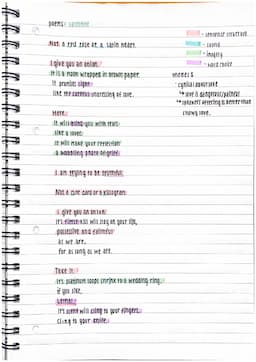 poems : valentine
- sentence structure
- sound
- imagery
- word choice
Not a red rose or a satin heart.
I give you an onion.
It is a moon wrapped in brown paper.
It promises light
like the careful undressing of love.
themes :
- cynical about love
↳ love is dangerous/painful
↳ honest
is better than
love.
Here.
It will blind you with tears
like a lover.
It will make your reflection
a wobbling photo of grief.
I am trying to be truthful.
Not a cute card or a kissogram.
I give you an onion.
Its fierce kiss will stay on your lips,
possessive and faithful
as we are,
for as long as we are.
Take it.
Its platinum loops shrink to a wedding ring,
if you like.
Lethal.
Its scent will cling to your fingers,
cling to your knife.